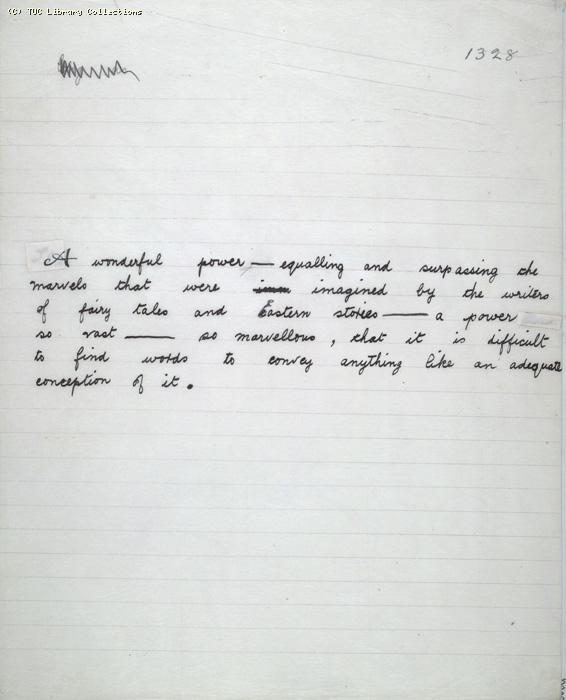 (C) TUC Library Collections
1328
A wonderful power — equalling and surpassing the
marvels that were imagined by the writers
of fairy tales and Eastern stories — a power
so vast — so marvellous, that it is difficult
to find words to convey anything like an adequate
conception of it.